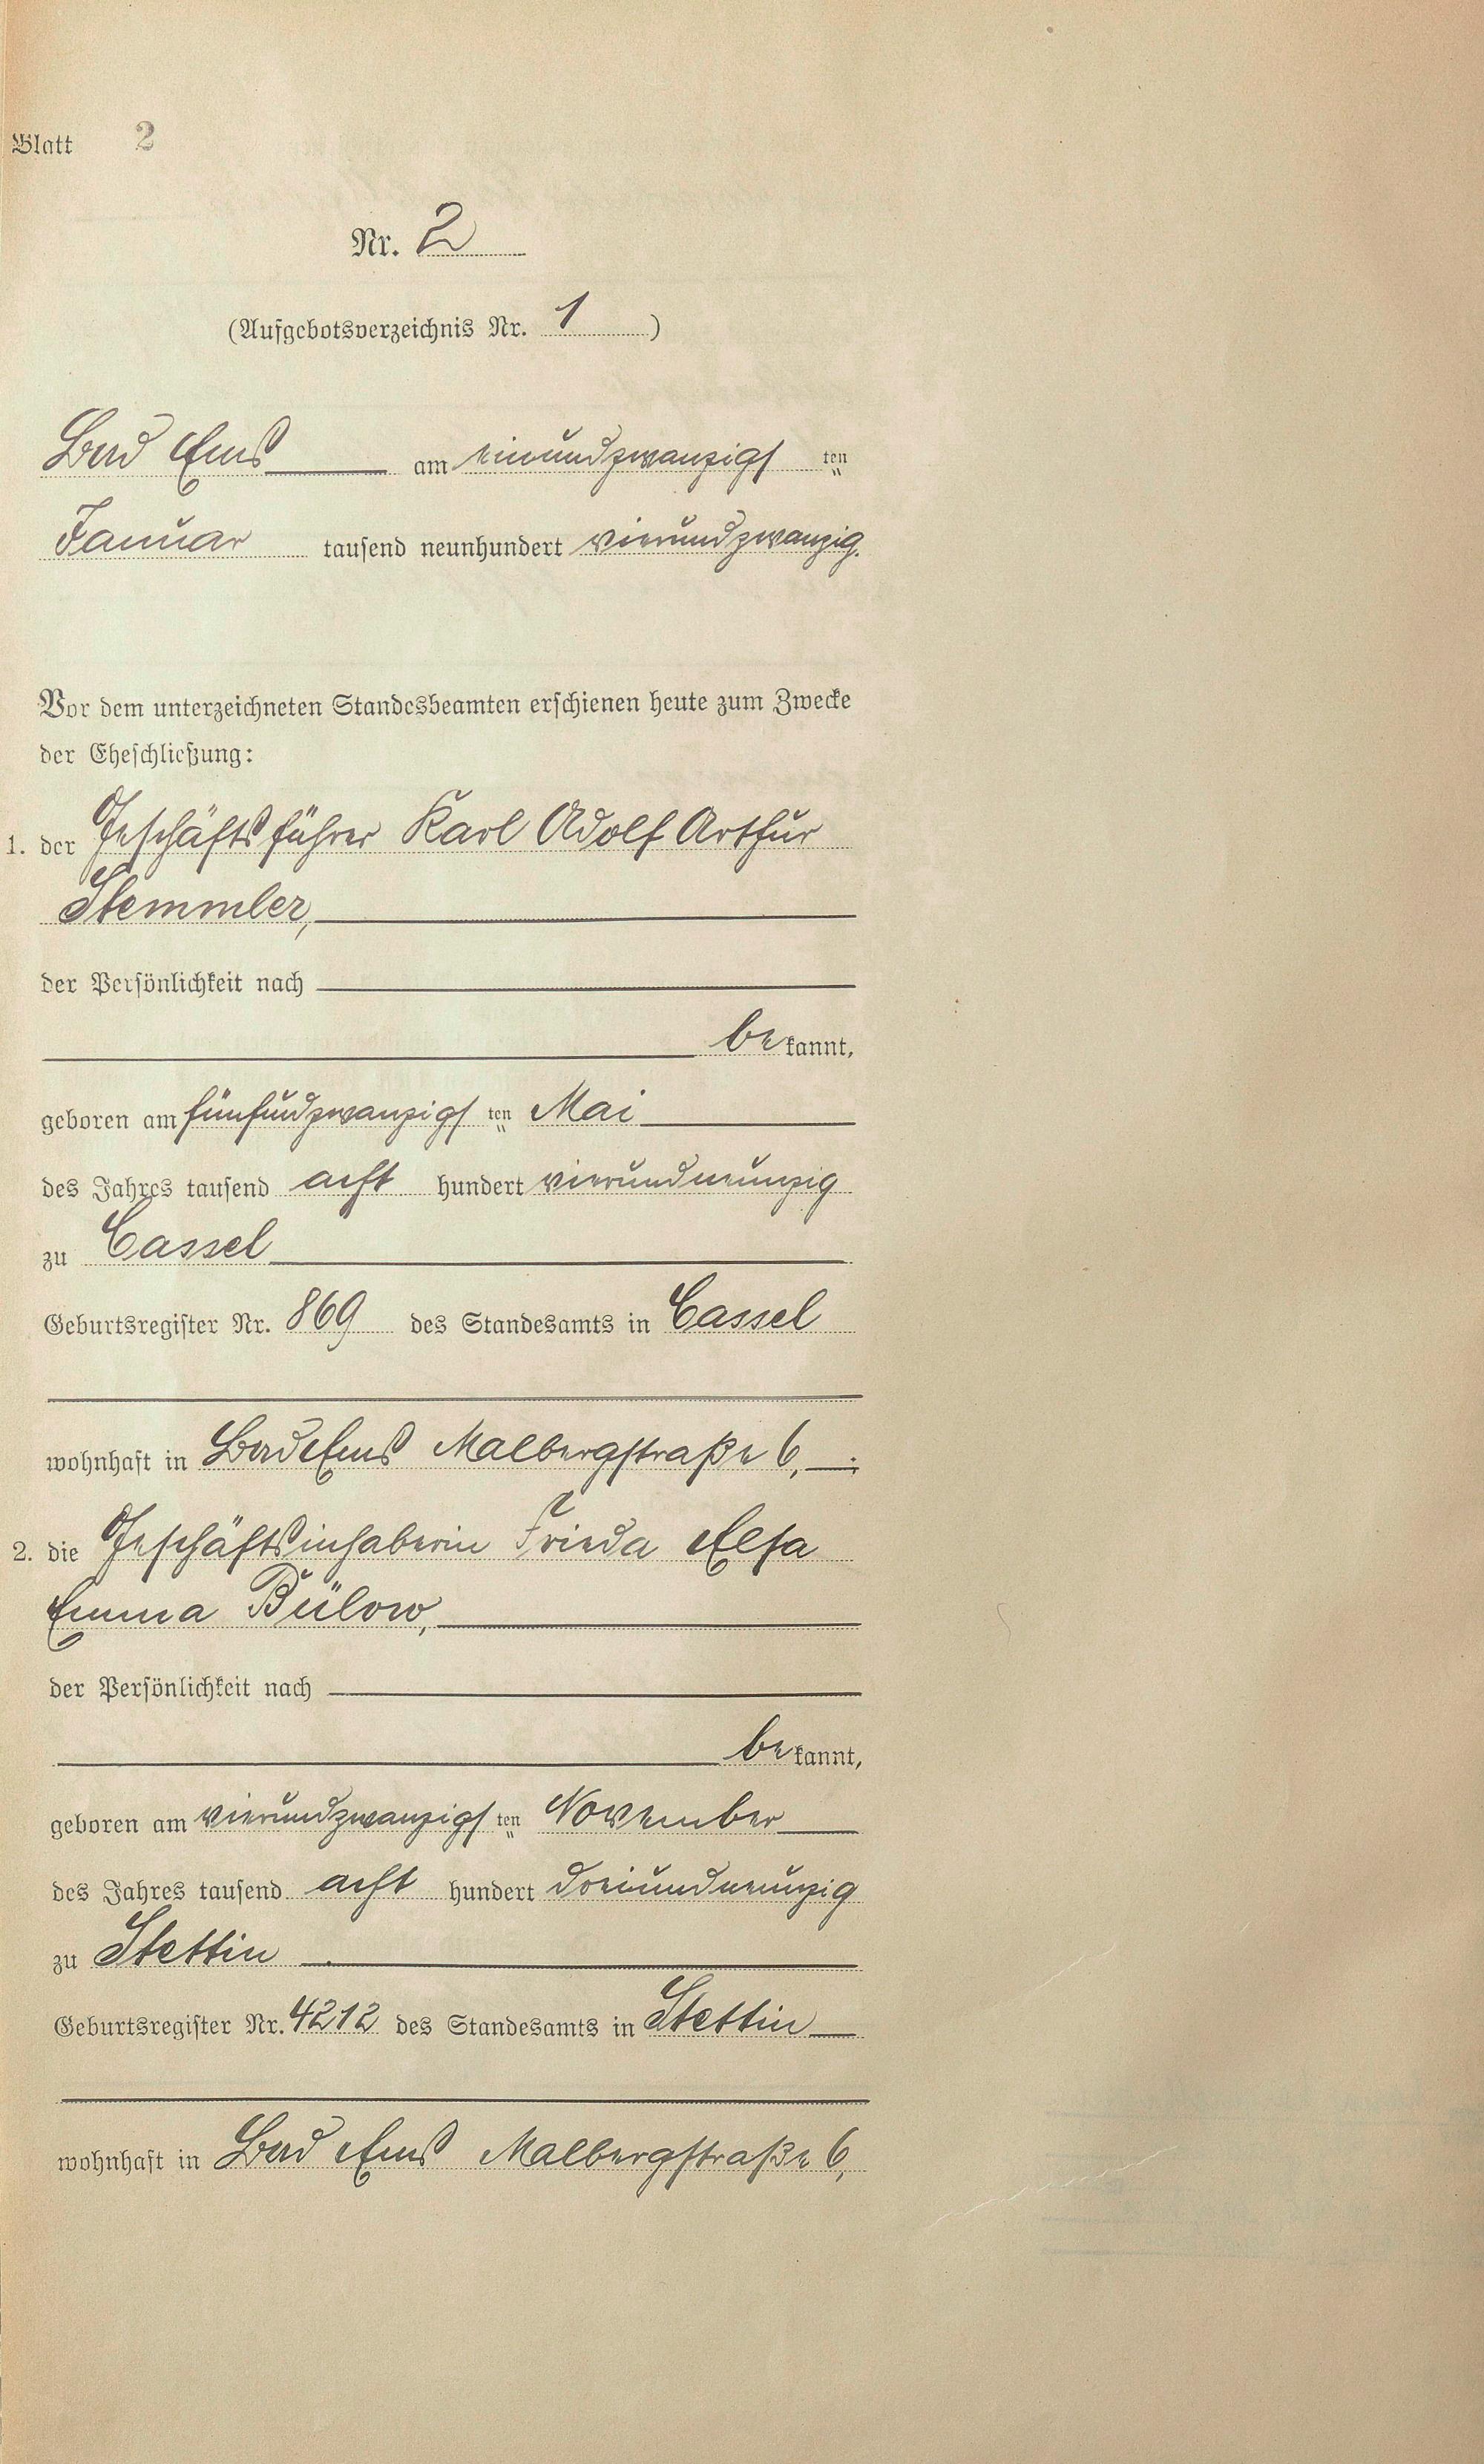 Blatt 2
Nr. 2
(Aufgebotsverzeichnis Nr. 1 )
Bad Ems am einundzwanzigs ten
Januar tausend neunhundert vierundzwanzig.
Vor dem unterzeichneten Standesbeamten erschienen heute zum Zwecke
der Eheschließung:
1. der Geschäftsführer Karl Adolf Arthur
Stemmler,
der Persönlichkeit nach
be kannt,
geboren am fünfundzwanzigs ten Mai
des Jahres tausend acht hundert vierundneunzig
zu Cassel
Geburtsregister Nr. 869 des Standesamts in Cassel
wohnhaft in Bad Ems Malbergstraße 6, ;
2. die Geschäftsinhaberin Frieda Elsa
Emma Bülow,
der Persönlichkeit nach
be kannt,
geboren am vierundzwanzigs ten November
des Jahres tausend acht hundert dreiundneunzig
zu Stettin
Geburtsregister Nr. 4212 des Standesamts in Stettin
wohnhaft in Bad Ems Malbergstraße 6,